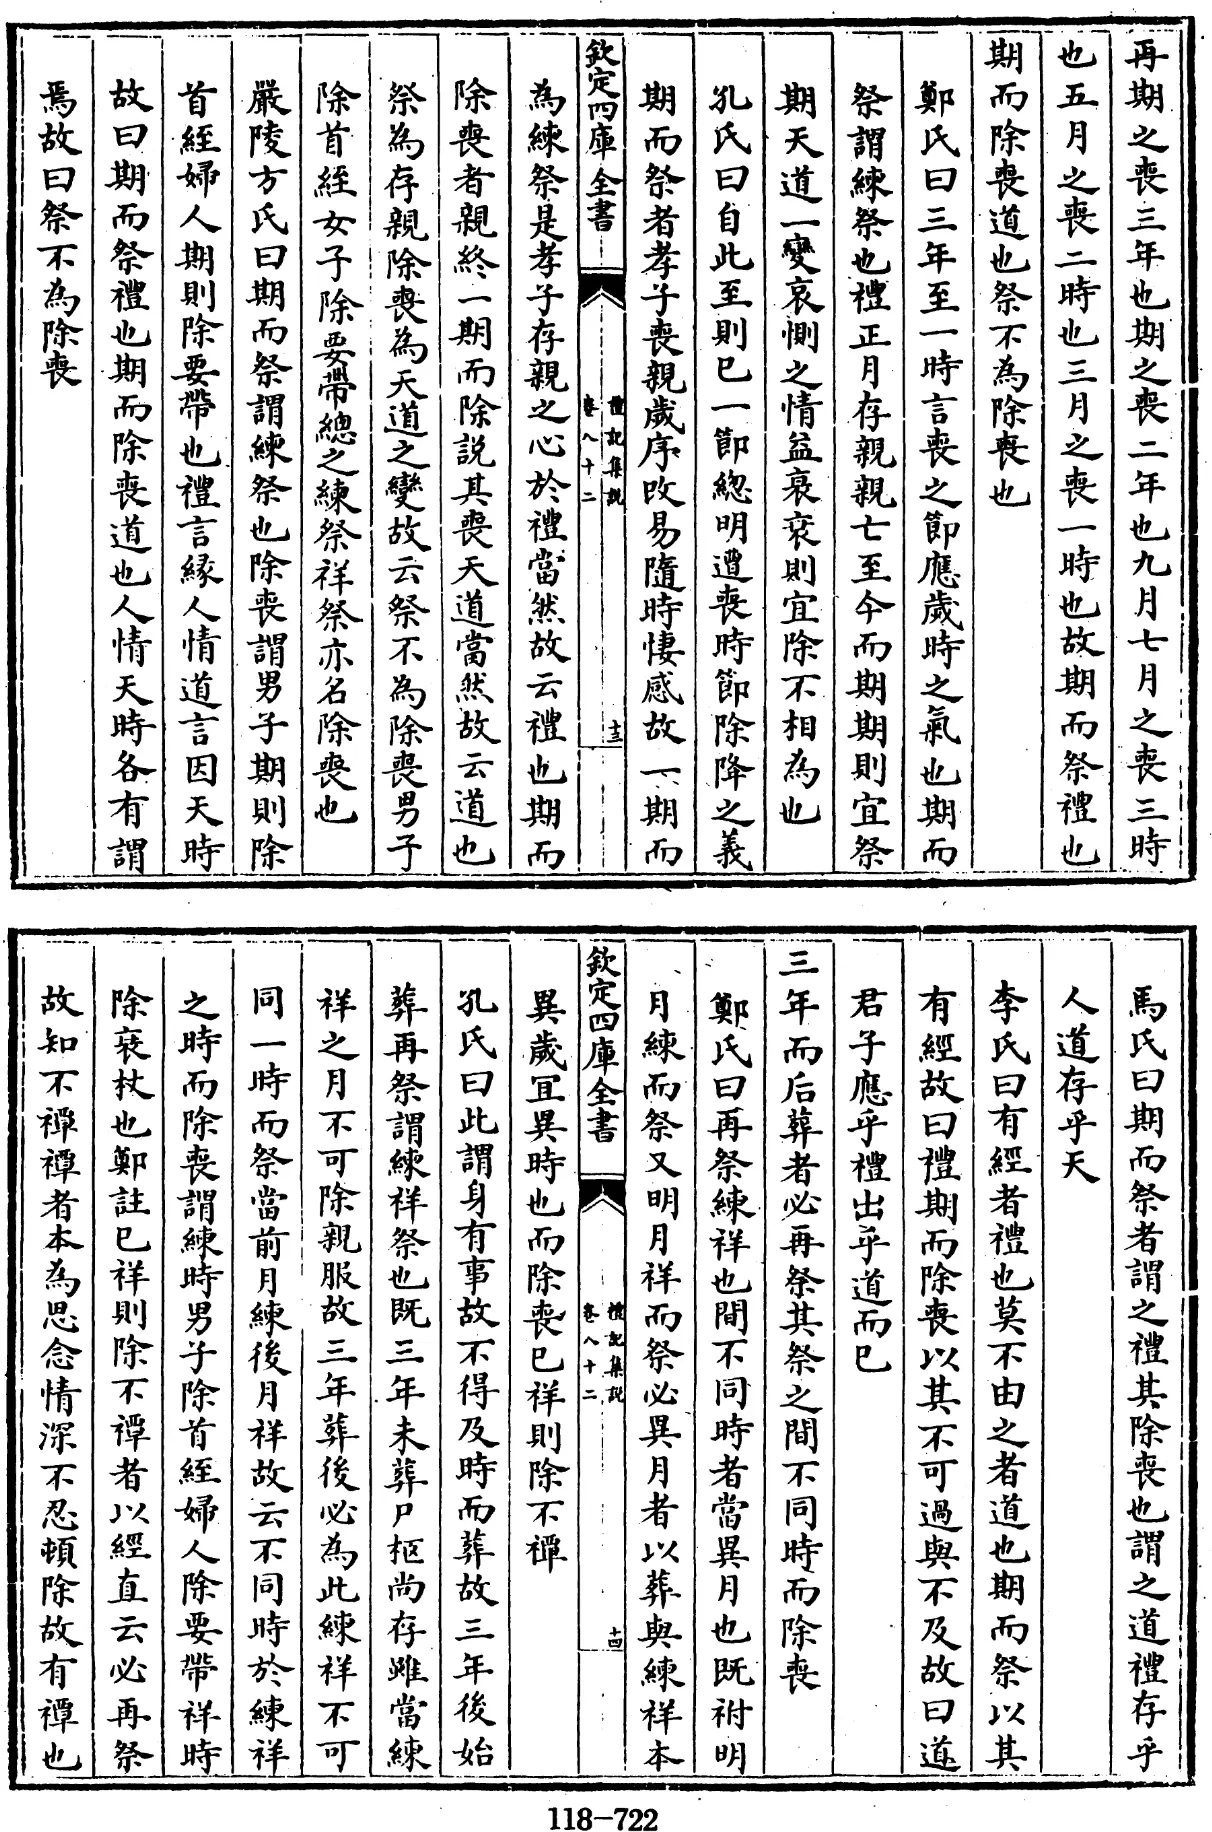 再期之喪三年也期之喪二年也九月七月之喪三時
也五月之喪二時也三月之喪一時也故期而祭禮也
期而除喪道也祭不為除喪也
鄭氏曰三年至一時言喪之節應歲時之氣也期而
祭謂練祭也禮正月存親親亡至今而期期則宜祭
期天道一變哀惻之情益衰衰則宜除不相為也
孔氏曰自此至則已一節總明遭喪時節除降之義
期而祭者孝子喪親歲序改易隨時悽感故一期而
欽定四庫全書
禮記集說
卷八十二
十三
為練祭是孝子存親之心於禮當然故云禮也期而
除喪者親終一期而除説其喪天道當然故云道也
祭為存親除喪為天道之變故云祭不為除喪男子
除首絰女子除要帶總之練祭祥祭亦名除喪也
嚴陵方氏曰期而祭謂練祭也除喪謂男子期則除
首絰婦人期則除要帶也禮言緣人情道言因天時
故曰期而祭禮也期而除喪道也人情天時各有謂
焉故曰祭不為除喪
馬氏曰期而祭者謂之禮其除喪也謂之道禮存乎
人道存乎天
李氏曰有經者禮也莫不由之者道也期而祭以其
有經故曰禮期而除喪以其不可過與不及故曰道
君子應乎禮出乎道而已
三年而后葬者必再祭其祭之間不同時而除喪
鄭氏曰再祭練祥也間不同時者當異月也既祔明
月練而祭又明月祥而祭必異月者以葬與練祥本
欽定四庫全書
禮記集說
卷八十二
十四
異歲冝異時也而除喪已祥則除不禫
孔氏曰此謂身有事故不得及時而葬故三年後始
葬再祭謂練祥祭也既三年未葬尸柩尚存雖當練
祥之月不可除親服故三年葬後必為此練祥不可
同一時而祭當前月練後月祥故云不同時於練祥
之時而除喪謂練時男子除首絰婦人除要帶祥時
除衰杖也鄭註已祥則除不禫者以經直云必再祭
故知不禫禫者本為思念情深不忍頓除故有禫也
118-722